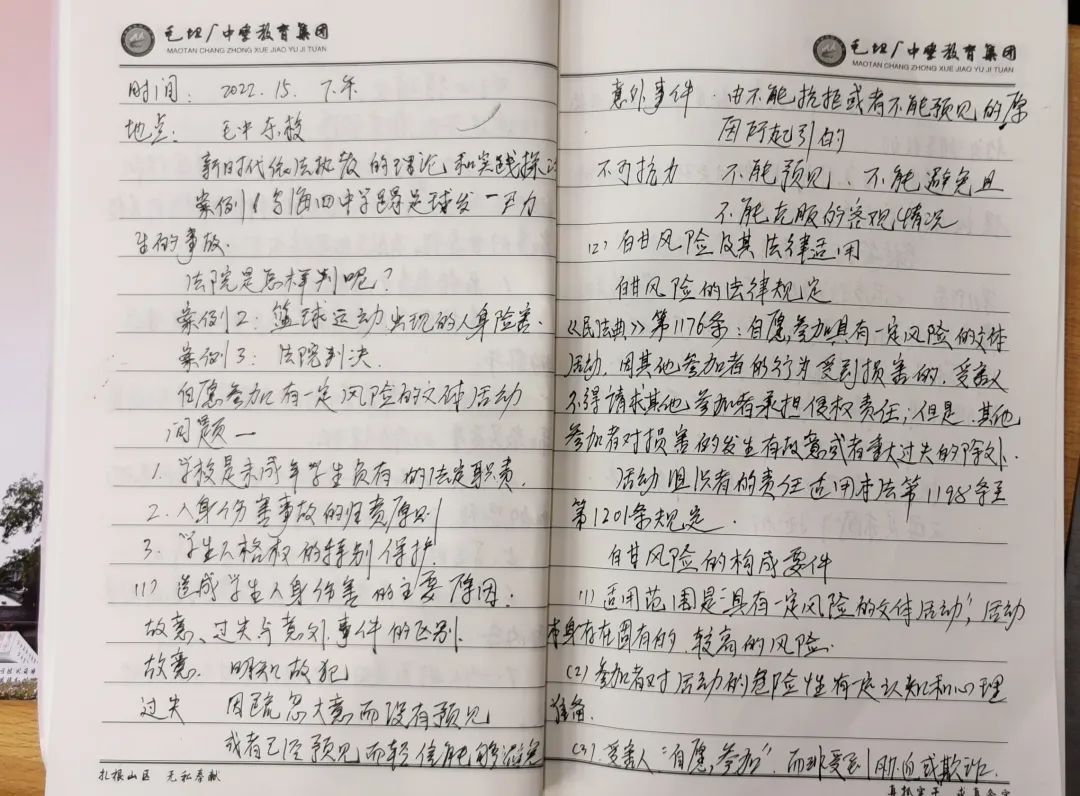 毛坦厂中学教育集团
MAOTAN CHANG ZHONG XUE JIAO YU JI TUAN
时间: 2022.15. 下午
地点: 毛中东校
新时代依法执教的理论和实践探
案例1 上海四中学 足球发
生的事故.
法院是怎样判呢?
案例2: 篮球运动出现的人身险害.
案例3: 法院判决.
自愿参加有一定风险的文体活动
问题一
1. 学校是未成年学生负有的法定职责.
2. 人身伤害事故的归责原则
3. 学生人格权的特别保护
(1) 造成学生人身伤害的主要原因:
故意、过失与意外事件的区别.
故意. 明知故犯
过失 因疏忽大意而没有预见
或者已经预见而轻信能够避免
扎根山区 无私奉献
毛坦厂中学教育集团
MAOTAN CHANG ZHONG XUE JIAO YU JI TUAN
意外事件. 由不能抗拒或者不能预见的原
因所起引的
不可抗力 不能预见、不能避免且
不能克服的客观情况
(2) 自甘风险及其法律适用
自甘风险的法律规定
《民法典》第1176条: 自愿参加具有一定风险的文体
活动, 因其他参加者的行为受到损害的, 受害人
不得请求其他参加者承担侵权责任; 但是, 其他
参加者对损害的发生有故意或者重大过失的除外.
活动组织者的责任适用本法第1198条至
第1201条规定.
自甘风险的构成要件
(1) 适用范围是“具有一定风险的文体活动”, 活动
本身存在固有的、较高的风险.
(2) 参加者对活动的危险性有一定认知和心理
准备.
(3) 受害人“自愿参加”, 而非受到胁迫或欺诈.